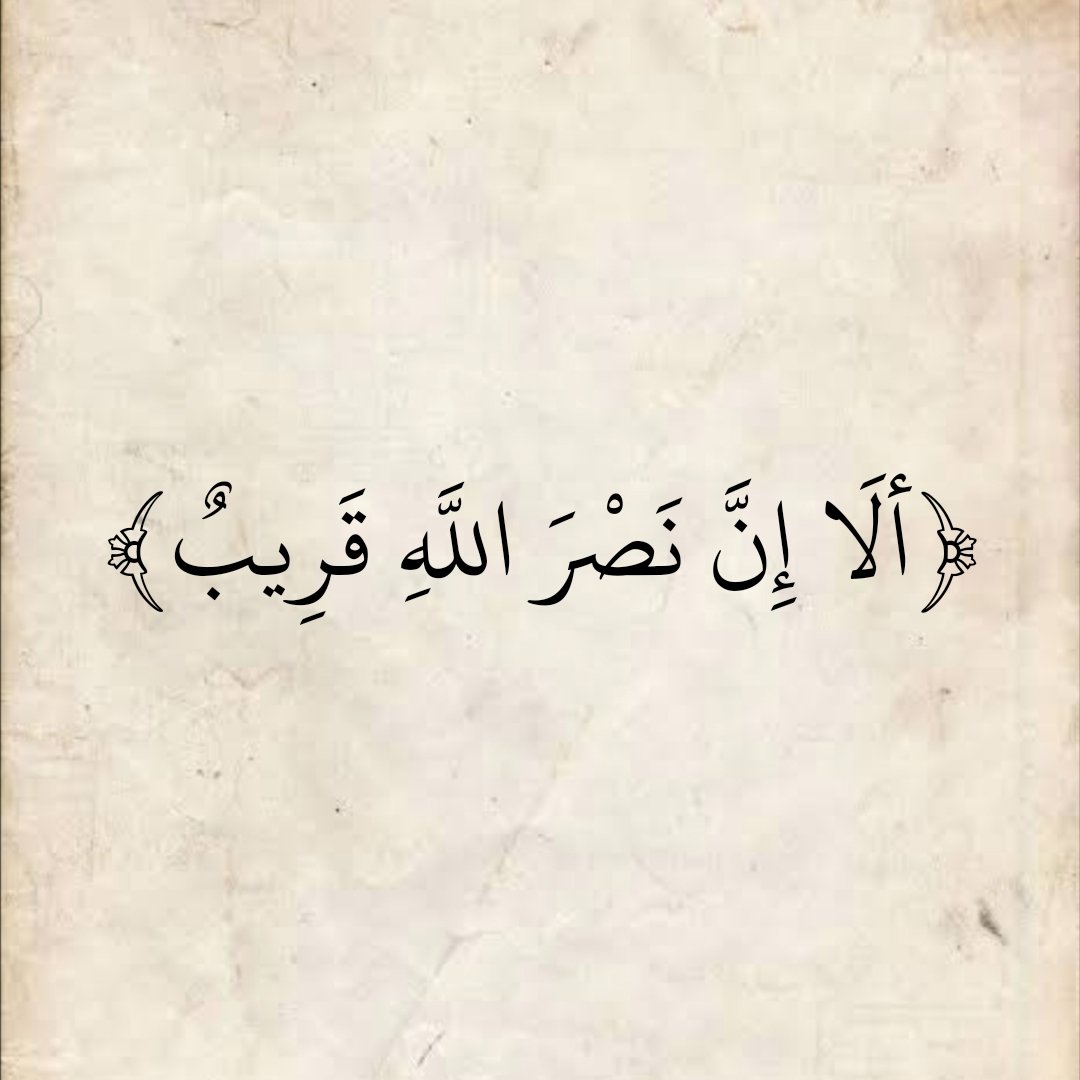 ﴿ألَا إِنَّ نَصْرَ اللَّهِ قَرِيبٌ﴾